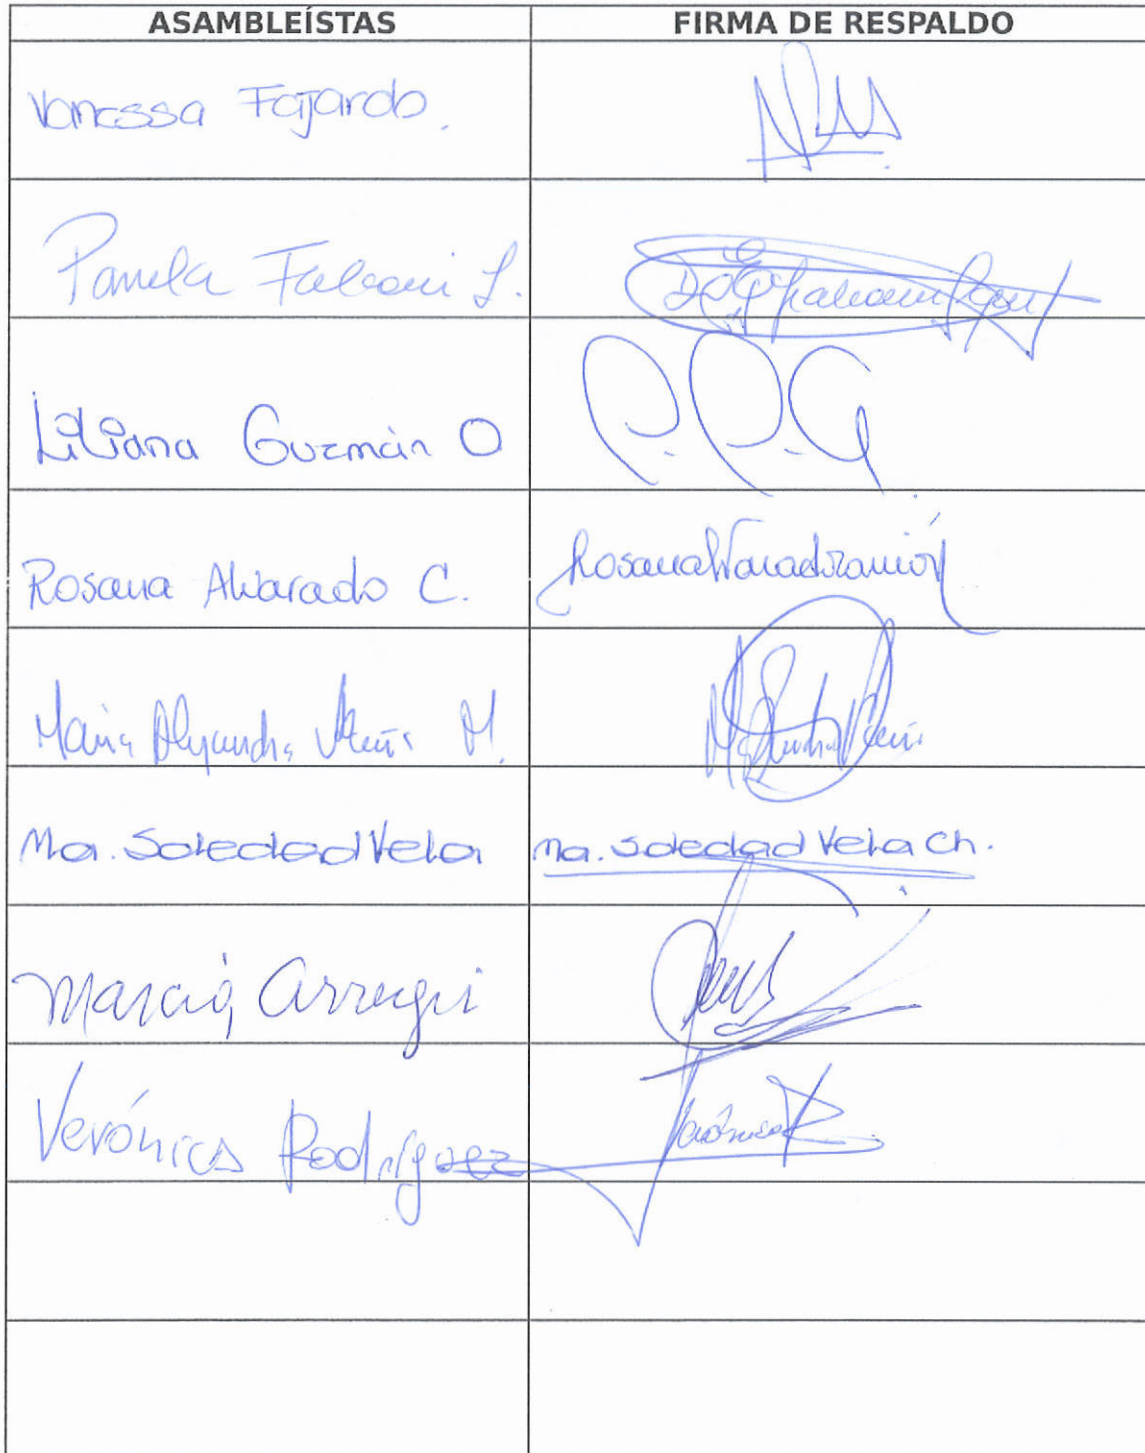 ASAMBLEÍSTAS FIRMA DE RESPALDO
Vanessa Fajardo.
Pamela Falconi L.
Liliana Guzmán O P.P.G
Rosana Alvarado C.
María Alejandra Vicuña M.
Ma. Soledad Vela Ma. Soledad Vela Ch.
Marcia Arregui
Verónica Rodríguez